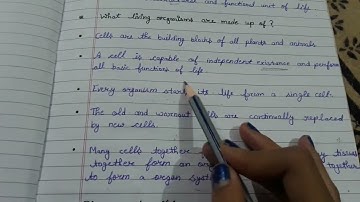 and functional unit of life
What living organisms are made up of?
Cells are the building blocks of all plants and animals
A cell is capable of independent existance and perform
all basic functions of life
Every organism starts its life from a single cell.
The old and wornout cells are continually replaced
by new cells.
Many cells together tissue
together form an together
to form a organ syst